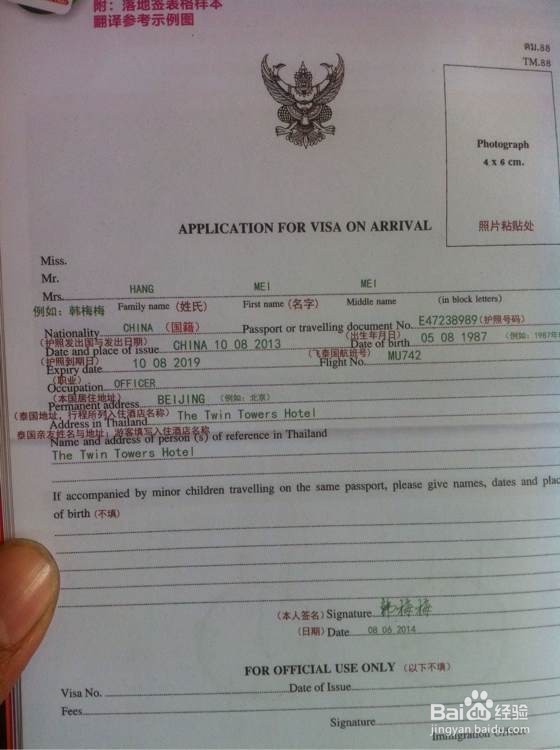 附：落地签表格样本
翻译参考示例图
ตม.88
TM.88
Photograph
4 x 6 cm.
照片粘贴处
APPLICATION FOR VISA ON ARRIVAL
Miss.
Mr.
Mrs. HANG MEI MEI
例如：韩梅梅 Family name (姓氏) First name (名字) Middle name (in block letters)
Nationality CHINA (国籍) Passport or travelling document No. E47238989 (护照号码)
(护照发出国与发出日期) (出生年月日)
Date and place of issue CHINA 10 08 2013 Date of birth 05 08 1987 (例如：1987年
(护照到期日) (飞泰国航班号)
Expiry date 10 08 2019 Flight No. MU742
(职业)
Occupation OFFICER
(本国居住地址)
Permanent address BEIJING (例如：北京)
(泰国地址，行程所列入住酒店名称)
Address in Thailand The Twin Towers Hotel
泰国亲友姓名与地址：游客填写入住酒店名称
Name and address of person (s) of reference in Thailand
The Twin Towers Hotel
If accompanied by minor children travelling on the same passport, please give names, dates and plac
of birth (不填)
(本人签名) Signature 韩梅梅
(日期) Date 08 06 2014
FOR OFFICIAL USE ONLY (以下不填)
Visa No. Date of Issue
Fees
Signature
Immigration Officer
Baidu 经验
jingyan.baidu.com